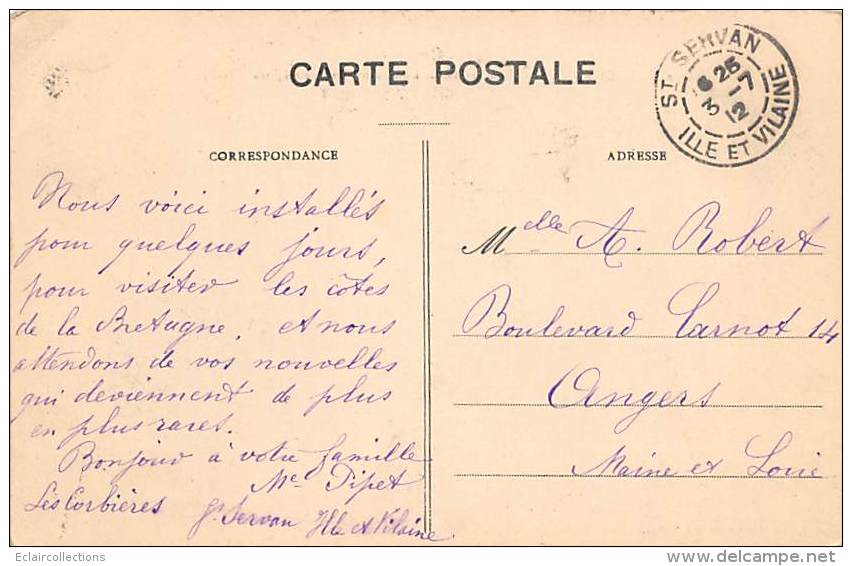 CARTE POSTALE
ST SERVAN
6 25
3 - 7
12
ILLE ET VILAINE
CORRESPONDANCE
Nous voici installés
pour quelques jours,
pour visiter les côtes
de la Bretagne, et nous
attendons de vos nouvelles
qui deviennent de plus
en plus rares.
Bonjour à votre famille
Me Pipet
Les Corbières
St Servan Ille et Vilaine
ADRESSE
Melle A. Robert
Boulevard Carnot 14
Angers
Maine et Loire
Eclaircollections
delcampe.net